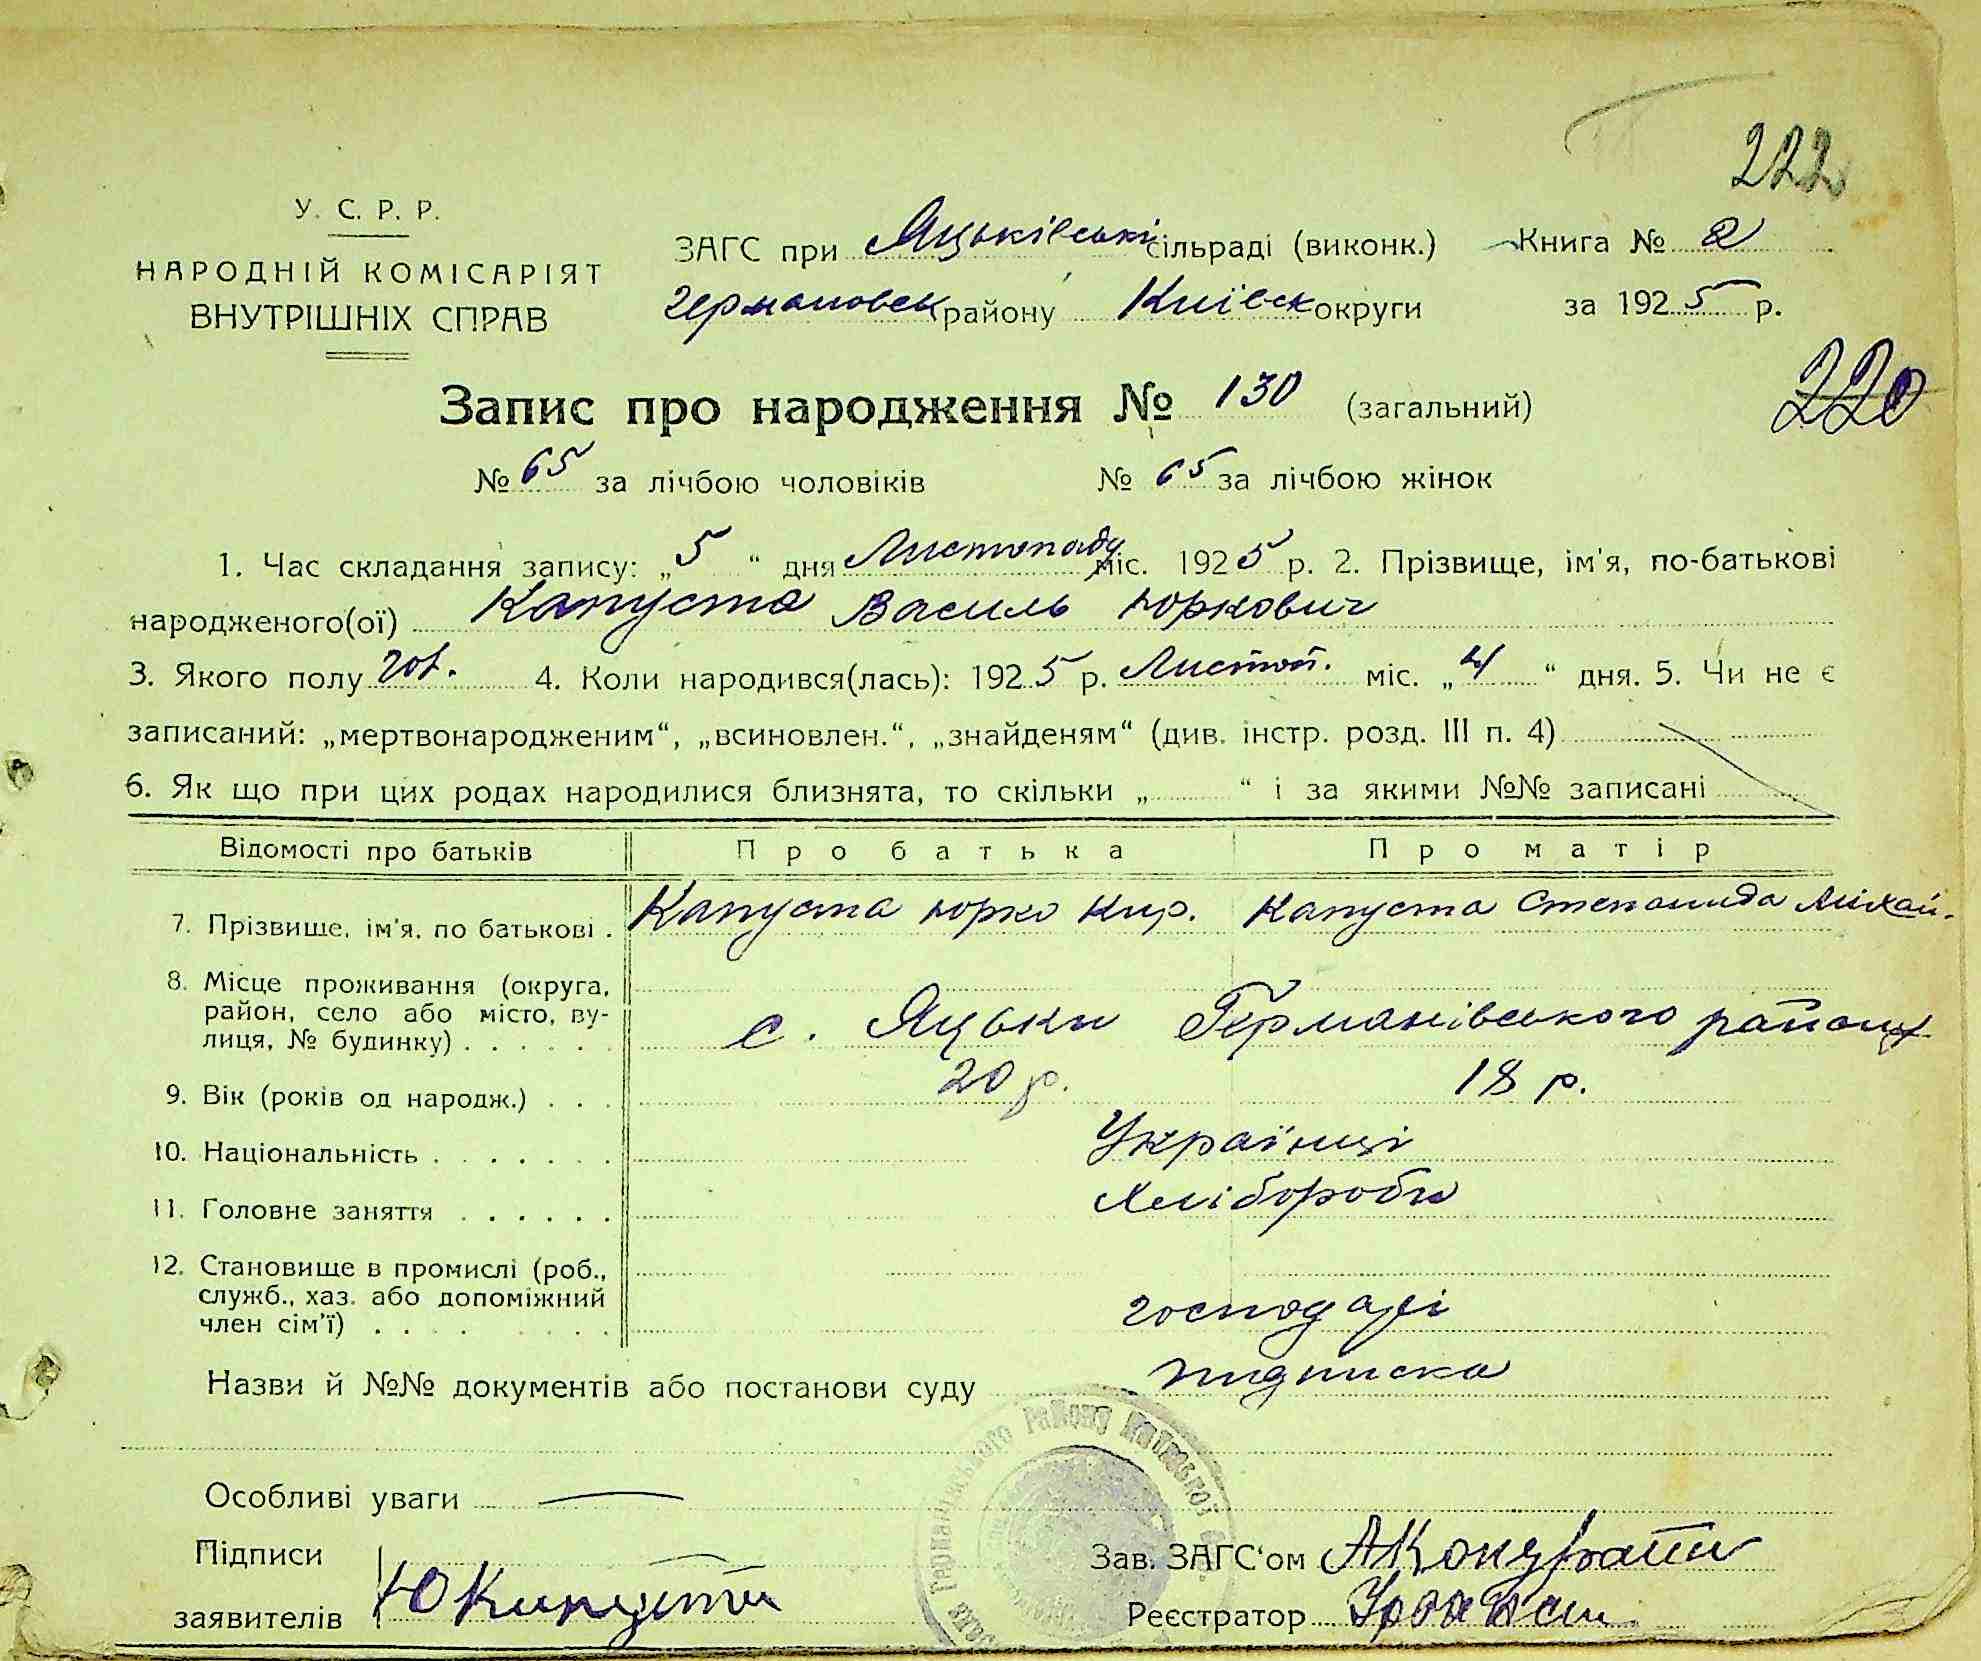 222
У. С. Р. Р.
НАРОДНІЙ КОМІСАРІЯТ
ВНУТРІШНІХ СПРАВ
ЗАГС при Яцьківські сільраді (виконк.) Книга № 2
Германовск району Київск округи за 1925 р.
220
Запис про народження № 130 (загальний)
№ 65 за лічбою чоловіків № 65 за лічбою жінок
1. Час складання запису: „5“ дня Листопаду міс. 1925 р. 2. Прізвище, ім'я, по-батькові
народженого(ої) Капуста Василь Юркович
3. Якого полу чол. 4. Коли народився(лась): 1925 р. Листоп. міс. „4“ дня. 5. Чи не є
записаний: „мертвонародженим“, „всиновлен.“, „знайденям“ (див. інстр. розд. III п. 4)
6. Як що при цих родах народилися близнята, то скільки „ “ і за якими №№ записані
Відомості про батьків Про батька Про матір
7. Прізвище, ім'я, по батькові . Капуста Юрко Кир. Капуста Степанида Михай.
8. Місце проживання (округа,
район, село або місто, ву-
лиця, № будинку) . . . . . . с. Яцьки Германівського району
9. Вік (років од народж.) . . . 20 р. 18 р.
10. Національність . . . . . . . Українці
11. Головне заняття . . . . . . Хлібороби
12. Становище в промислі (роб.,
служб., хаз. або допоміжний
член сім'ї) . . . . . . . . господарі
Назви й №№ документів або постанови суду підписка
Особливі уваги
Германівського Району Київської
Підписи
заявителів ЮКапуста
Зав. ЗАГС'ом
Реєстратор